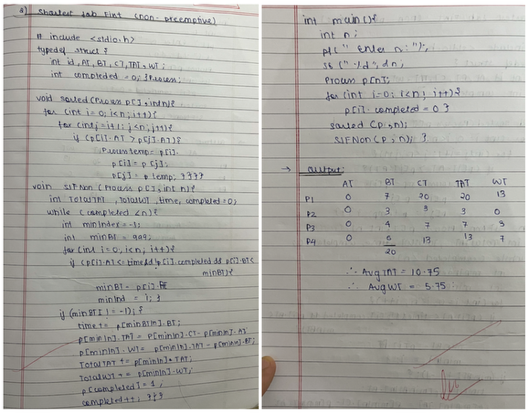 a) Shortest Job First (non-preemptive)
# include <stdio.h>
typedef struct {
int id, AT, BT, CT, TAT, WT;
int completed = 0; } Process;
void sorted (Process p[], int n) {
for (int i=0; i<n; i++) {
for (int j=i+1; j<n; j++) {
if (p[i].AT > p[j].AT) {
Process temp = p[i];
p[i] = p[j];
p[j] = temp; } } } }
void SJFNon (Process p[], int n) {
int TotalTAT, TotalWT, time, completed = 0;
while (completed < n) {
int minIndex = -1;
int minBT = 999;
for (int i=0; i<n; i++) {
if (p[i].AT <= time && !p[i].completed && p[i].BT <
minBT) {
minBT = p[i].BT
minInd = i; }
if (minBTI != -1) {
time += p[minBTIn].BT;
p[minIn].TAT = p[minIn].CT - p[minIn].AT
p[minIn].WT = p[minIn].TAT - p[minIn].BT;
TotalTAT += p[minIn].TAT;
TotalWT += p[minIn].WT;
p[completed] = 1;
completed++; } } }
int main() {
int n;
pf(" Enter n: ");
sf("%d", &n);
Process p[n];
for (int i=0; i<n; i++) {
p[i].completed = 0 }
sorted (p, n);
SJFNon (p, n); }
→ Output:
AT BT CT TAT WT
P1 0 7 20 20 13
P2 0 3 3 3 0
P3 0 4 7 7 3
P4 0 6 13 13 7
20
∴ Avg TAT = 10.75
∴ Avg WT = 5.75